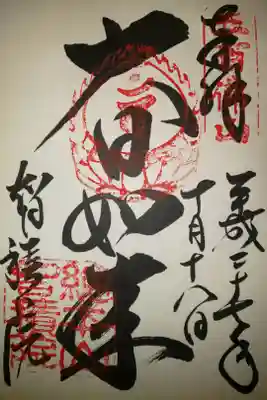 奉拝
平成二十七年
十月十八日
大日如来
智積院